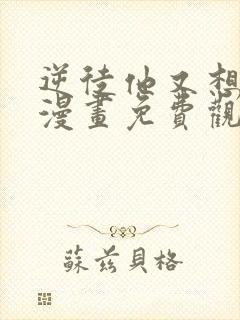 逆徒他又想
漫畫免費觀
蘇茲貝格